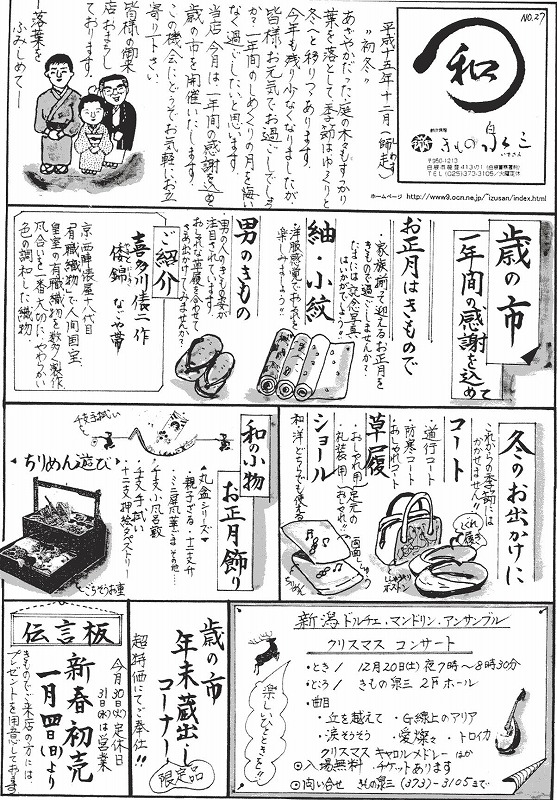 NO.27
和
創作呉服
きもの泉三
いずさん
〒950-1213
TEL (025)373-3105/火曜定休
ホームページ http://www9.ocn.ne.jp/~izusan/index.html
平成十五年十二月(師走)
"初冬"
あざやかだった庭の木々もすっかり
葉を落として季節はゆっくりと
冬へと移りつつあります。
今年も残り少なくなりましたが、
皆様、お元気でお過ごしでしょう
か?一年間のしめくくりの月を悔い
なく過ごしたいと思います。
当店、今月は一年間の感謝を込め
歳の市を開催いたします。
この機会にどうぞお気軽にお立
寄り下さい。
皆様の御来
店おまちし
ております。
―落葉を
ふみしめて―
歳の市
一年間の感謝を込めて
お正月はきもので
・家族揃って迎えるお正月を
きもので過ごしませんか?
たまには記念写真、
はいかがでしょう!!
紬・小紋
洋服感覚でおしゃれを
楽しみましょう!!
男のきもの
男の人のきもの姿が
注目されています。
おしゃれな草履も合わせて
さあお出かけしてみませんか?
ご紹介
喜多川俵二作
倭錦 なごや帯
京・西陣俵屋十八代目
「有職織物」で人間国宝
皇室の有職織物を数多く製作
風合いを一番大切に、やわらかい
色の調和した織物
冬のお出かけに
これからの季節には
かかせません!!
コート
・道行コート
・防寒コート
・おしゃれコート
草履
・おしゃれ用
・礼装用
足元の
おしゃれに
ショール
和・洋どちらでも使える
和の小物
お正月飾り
丸盆シリーズ
親子ざる・十二支丹
・ミニ屏風等・・・その他
・干支小風呂敷
・干支手拭
・十二支押絵タペストリー
干支手拭い
ちりめん遊び
ごちそうお重
新潟ドルチェ・マンドリン・アンサンブル
クリスマス コンサート
・とき/ 12月20日(土)夜7時~8時30分
・ところ/ きもの泉三 2Fホール
・曲目
・丘を越えて ・G線上のアリア
・涙そうそう ・愛燦々 ・トロイカ
クリスマス キャロルメドレー ほか
◎入場無料 チケットあります
◎問い合せ きもの泉三(373)-3105まで
楽しいひとときを!!
歳の市
年末蔵出し
コーナー
限定品
超特価にてご奉仕!!
伝言板
今月30日(火)定休日
31日(水)は営業
新春初売
一月四日(日)より
きものでご来店の方には、
プレゼントを用意しております